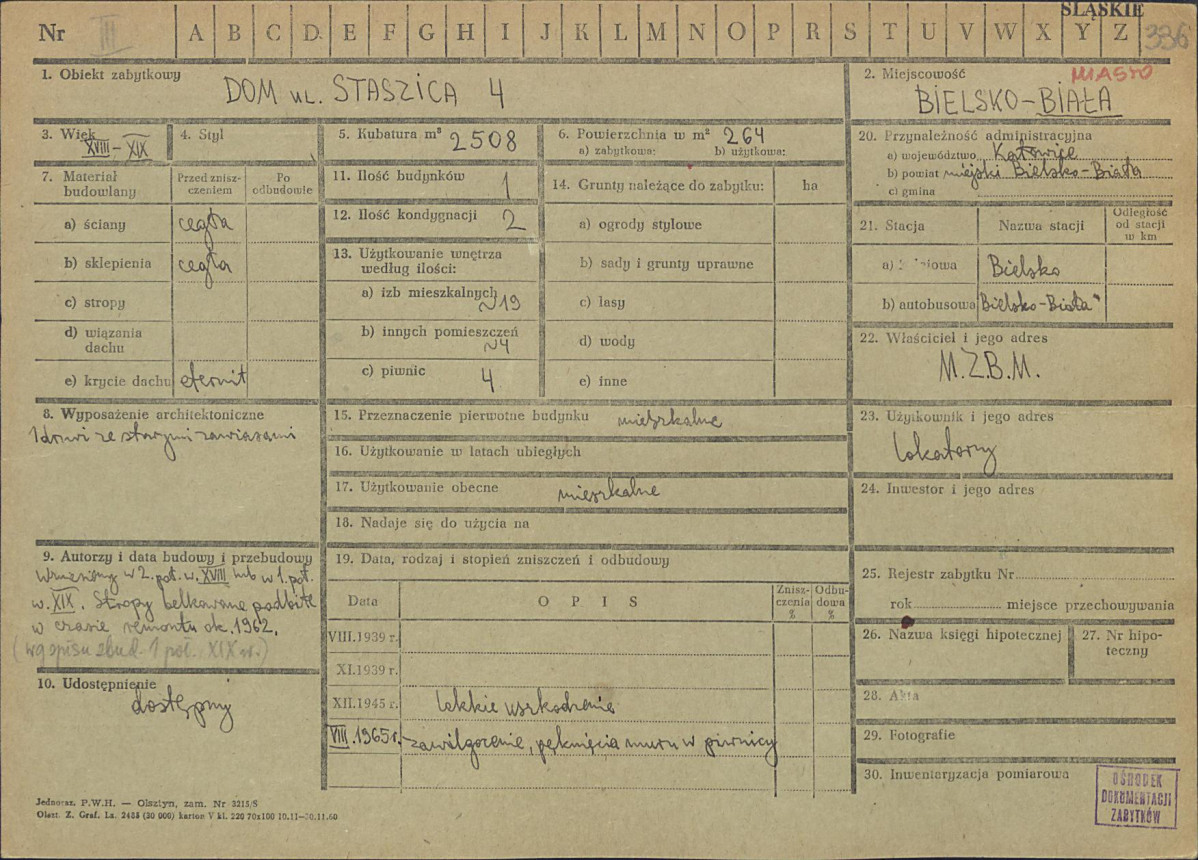 ŚLĄSKIE
Nr III A B C D E F G H I J K L M N O P R S T U V W X Y Z 336
1. Obiekt zabytkowy
DOM ul. STASZICA 4
2. Miejscowość
MIASTO
BIELSKO-BIAŁA
3. Wiek
XVIII-XIX
4. Styl
5. Kubatura m³ 2508
6. Powierzchnia w m² 264
a) zabytkowa: b) użytkowa:
20. Przynależność administracyjna
a) województwo Katowice
b) powiat miejski Bielsko-Biała
c) gmina
7. Materiał budowlany
Przed znisz-
czeniem
Po
odbudowie
a) ściany cegła
b) sklepienia cegła
c) stropy
d) wiązania
dachu
e) krycie dachu eternit
11. Ilość budynków 1
12. Ilość kondygnacji 2
13. Użytkowanie wnętrza
według ilości:
a) izb mieszkalnych ~19
b) innych pomieszczeń
~4
c) piwnic 4
14. Grunty należące do zabytku: ha
a) ogrody stylowe
b) sady i grunty uprawne
c) lasy
d) wody
e) inne
21. Stacja Nazwa stacji
Odległość
od stacji
w km
a) Bielsko
b) autobusowa Bielsko-Biała"
22. Właściciel i jego adres
M.Z.B.M.
8. Wyposażenie architektoniczne
1 drzwi ze starymi zawiasami
15. Przeznaczenie pierwotne budynku mieszkalne
16. Użytkowanie w latach ubiegłych
17. Użytkowanie obecne mieszkalne
18. Nadaje się do użycia na
23. Użytkownik i jego adres
lokatorzy
24. Inwestor i jego adres
9. Autorzy i data budowy i przebudowy
Wzniesiony w 2. poł. w. XVIII lub w 1. poł.
w. XIX. Stropy belkowane podbite
w czasie remontu ok. 1962.
(wg spisu zbud. 1 poł. XIX w.)
10. Udostępnienie
dostępny
19. Data, rodzaj i stopień zniszczeń i odbudowy
Data OPIS
Znisz-
czenia
%
Odbu-
dowa
%
VIII.1939 r.
XI.1939 r.
XII.1945 r. lekkie uszkodzenie
VIII.1965 r. zawilgocenie, pęknięcia muru w piwnicy
25. Rejestr zabytku Nr
rok miejsce przechowywania
26. Nazwa księgi hipotecznej
27. Nr hipo-
teczny
28. Akta
29. Fotografie
30. Inwentaryzacja pomiarowa
OŚRODEK
DOKUMENTACJI
ZABYTKÓW
Jednoraz. P.W.H. — Olsztyn, zam. Nr 3215/S
Olszt. Z. Graf. La. 2488 (30 000) karton V kl. 220 70x100 10.11—30.11.60